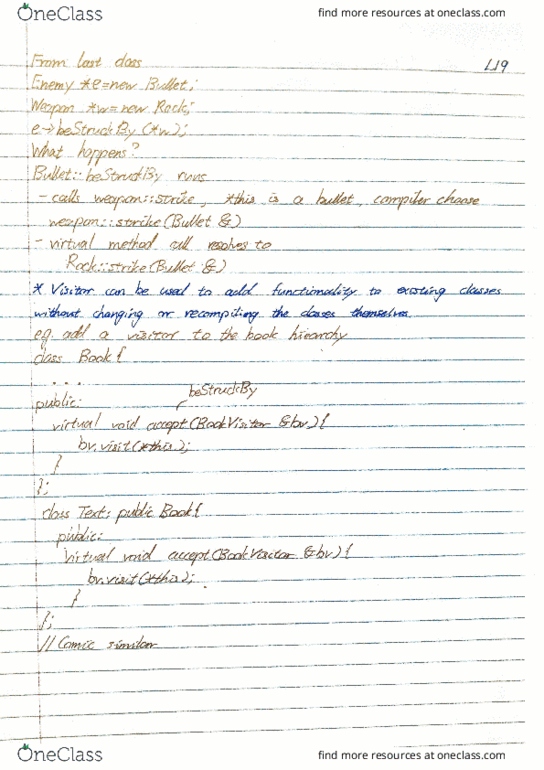 OneClass
find more resources at oneclass.com
L19
From last class
Enemy *e=new Bullet;
Weapon *w=new Rock;
e->beStruckBy (*w);
What happens?
Bullet::beStruckBy runs
- calls weapon::strike, *this is a bullet, compiler choose
weapon::strike(Bullet &)
- virtual method call resolves to
Rock::strike(Bullet &)
* Visitor can be used to add functionality to existing classes
without changing or recompiling the classes themselves.
e.g. add a visitor to the book hierarchy
class Book{
...
beStruckBy
public:
virtual void accept(BookVisitor &bv){
bv.visit(*this);
}
};
class Text: public Book{
public:
virtual void accept(BookVisitor &bv){
bv.visit(*this);
}
};
// Comic similar
OneClass
find more resources at oneclass.com